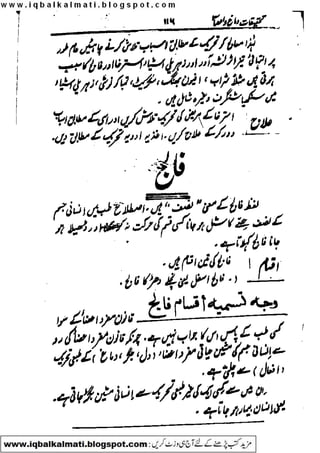 www.iqbalkalmati.blogspot.com
۱۱۶
لہٰذا معالج کو تحریک کے مطابق اسباب تلاش کرنے چاہئیں عام طور
پر انتہائی تیز اثر نشہ آور اور زہریلی اشیاء استرخا اور فالج کا سبب
ہوتی ہیں مثلاً شراب، افیون، بھنگ، سگریٹ، تمباکو زہریلی اشیاء
میں سنکھیا شنگرف وغیرہ شامل ہیں۔
علاج
استرخا کے مریض کی تحریک تلاش کریں اور اسی کے مطابق اسباب
دور کر کے علاج کریں۔ اغذیہ ادویہ تحریک کے مطابق دیں۔
فالج
لفظ فالج کے معنی "نصف" ہیں۔ اصطلاح طب میں انسانی جسم
کے نصف حصے کا شل ہو جانا کسی قسم کی حرکت نہ اور ڈھیلا ہو
جانا فالج کہلاتا ہے۔
اقسام
فالج کی تین اقسام ہیں۔
۱۔ فالج اسفل یعنی نچلے دھڑ کا فالج۔
وجہ تسمیہ اقسام فالج
قانون مفرد اعضاء کے سوا
کسی طب کے پاس اس کا جواب نہیں ہے۔ چونکہ قانون مفرد اعضاء کی رو
سے انسانی جسم کی مشین حیاتی مفرد اعضاء (دل، جگر، دماغ) کے طبعی تحریک
(افعال) سے چلتی ہے۔
ان میں سے کسی ایک کی غیر طبعی تحریک سے انسانی مشین بگڑ جاتی ہے۔
یعنی انسان بیمار ہو جاتا ہے۔
مزید کتب پڑھنے کے لئے آج ہی وزٹ کریں: www.iqbalkalmati.blogspot.com